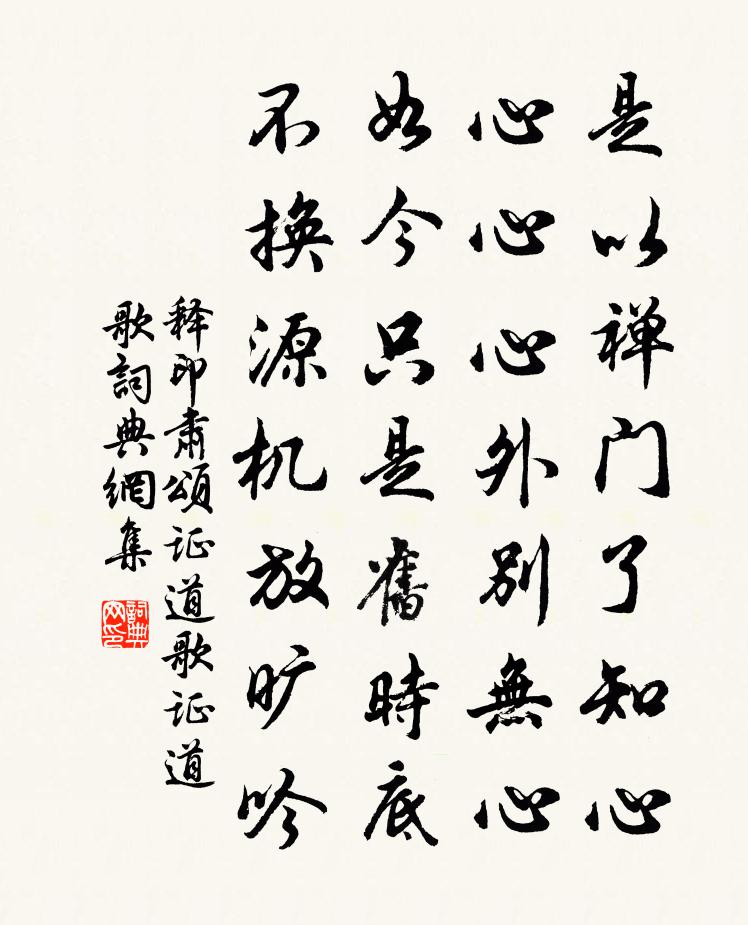 是以禅门了知心
心心心外别無心
如今只是舊時底
不换源机放旷吟
释印肃颂证道歌证道
歌詞典網集
詞典网印